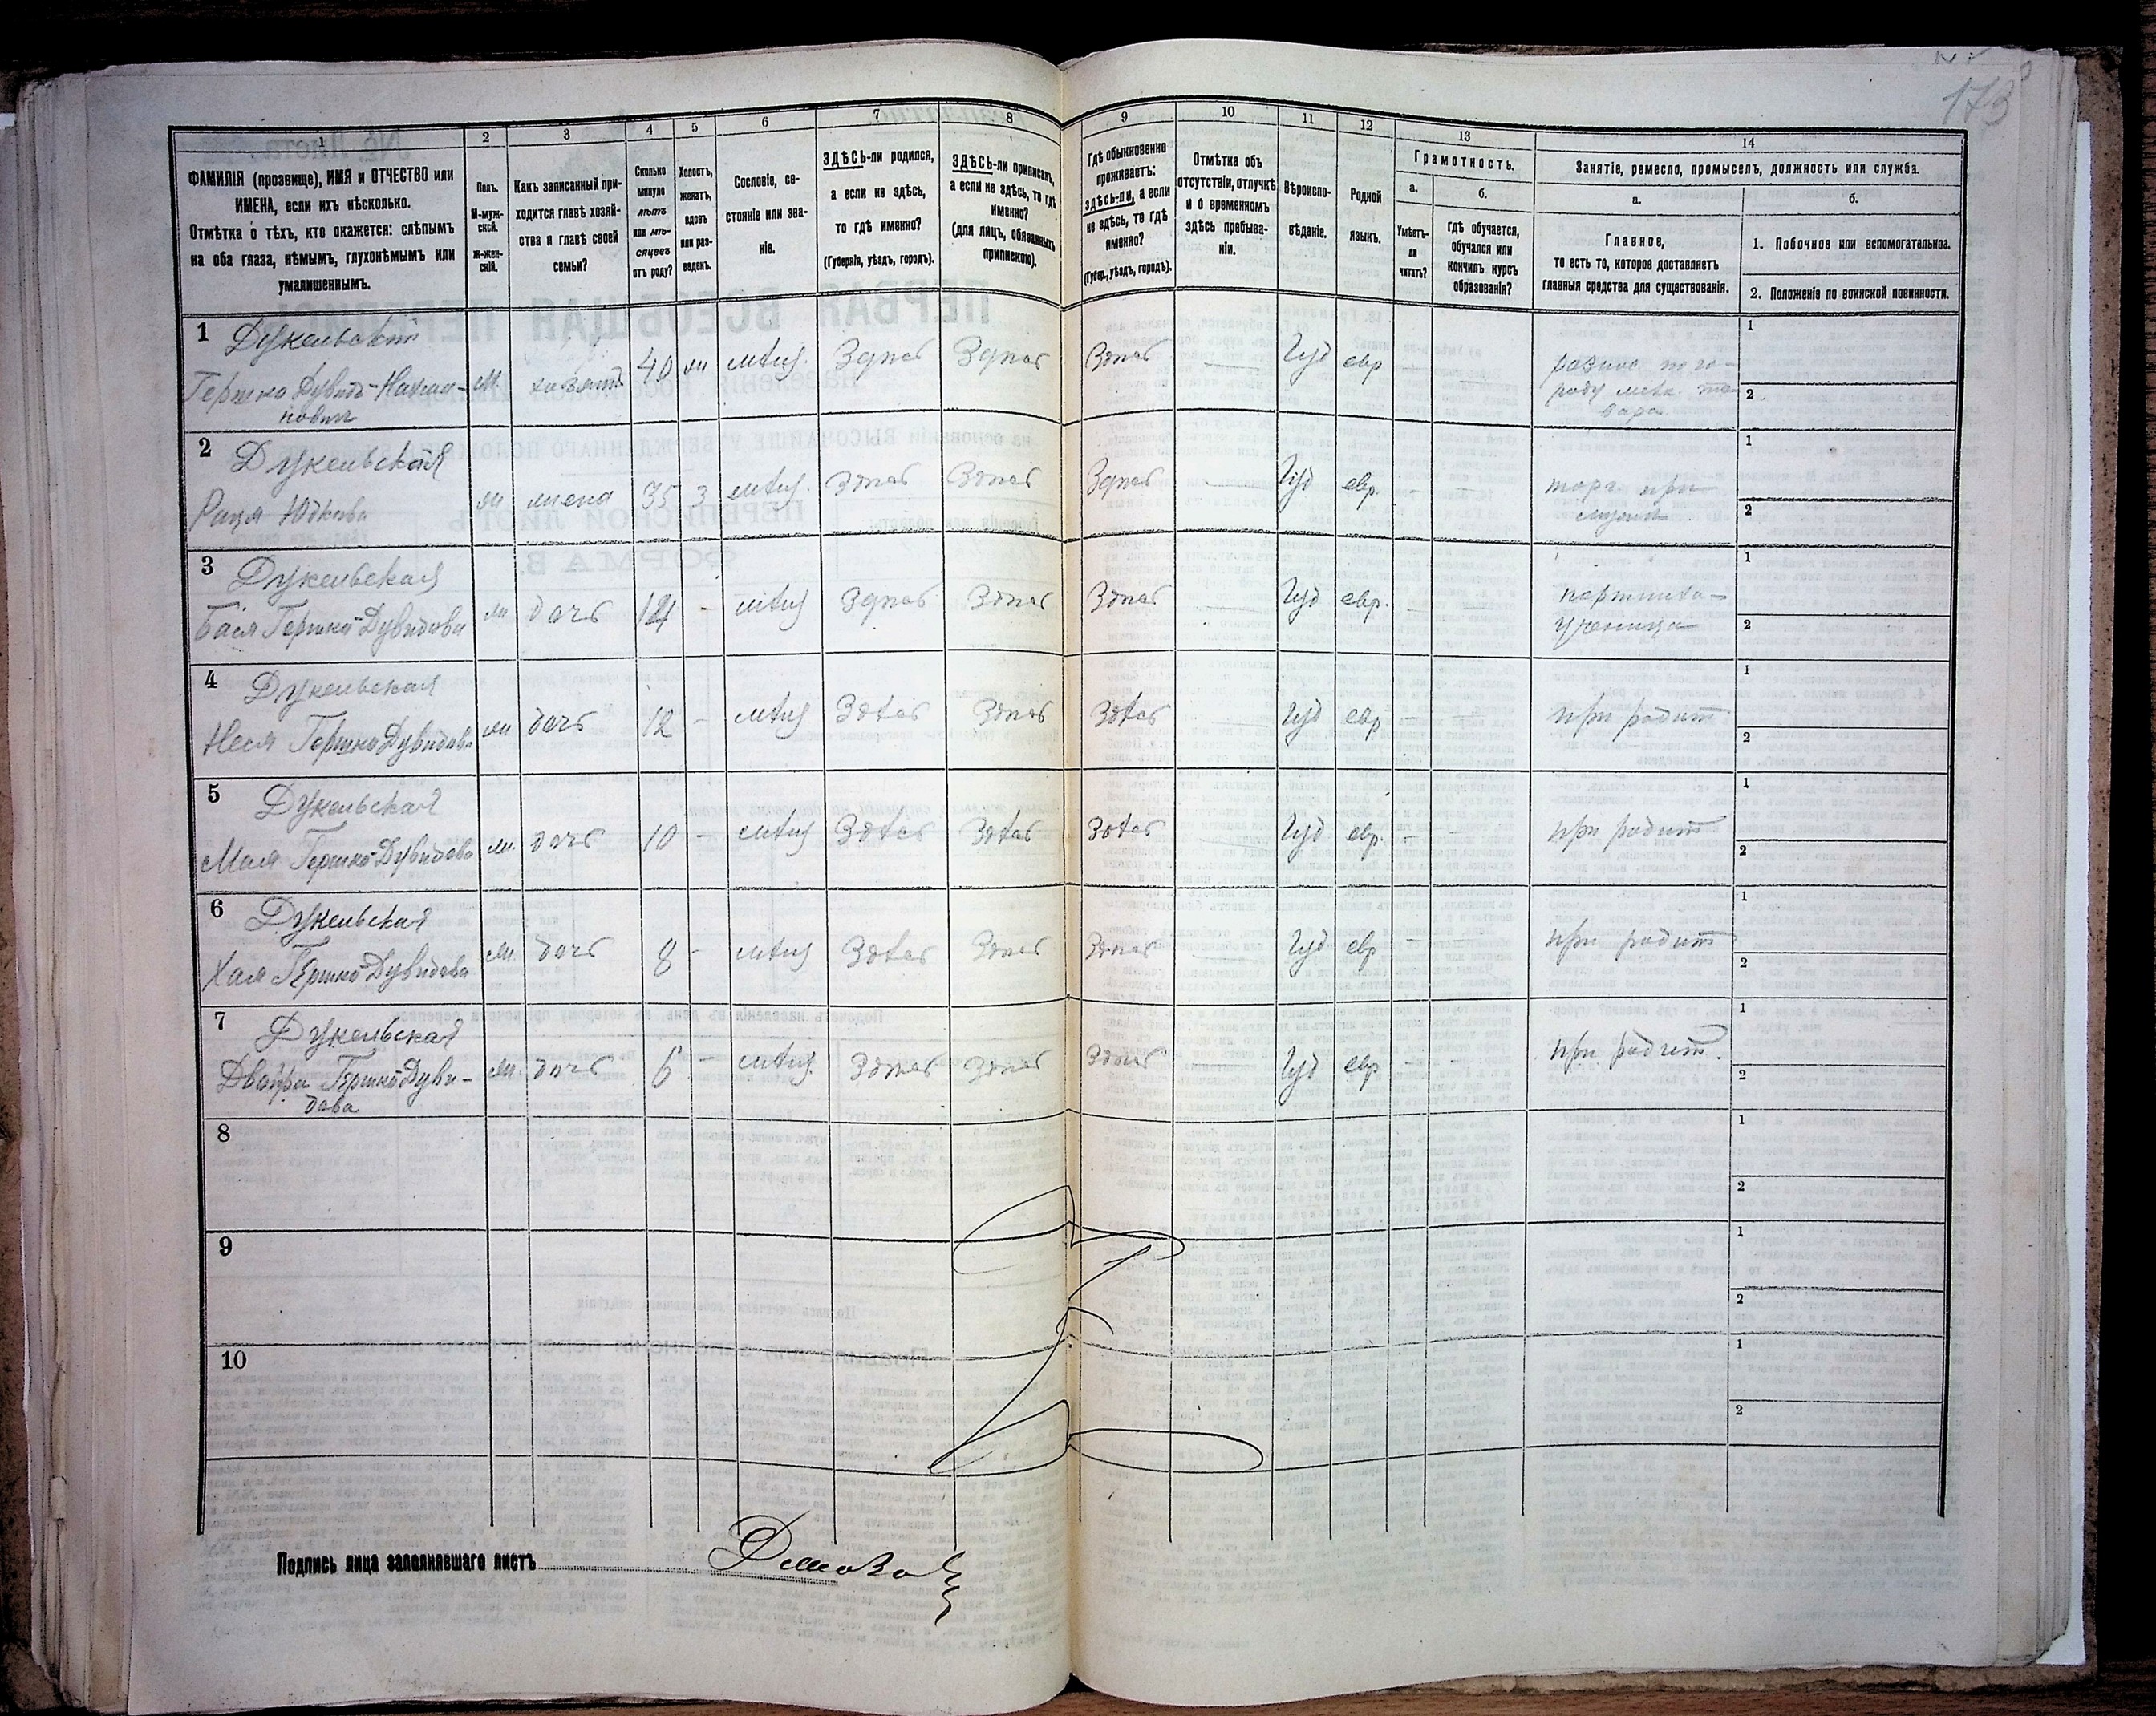 173
1 2 3 4 5 6 7 8 9 10 11 12 13 14
ФАМИЛІЯ (прозвище), ИМЯ и ОТЧЕСТВО или
ИМЕНА, если ихъ нѣсколько.
Отмѣтка о тѣхъ, кто окажется: слѣпымъ
на оба глаза, нѣмымъ, глухонѣмымъ или
умалишеннымъ.
Полъ.
М-муж-
ской.
Ж-жен-
скій.
Какъ записанный при-
ходится главѣ хозяй-
ства и главѣ своей
семьи?
Сколько
минуло
лѣтъ
или мѣ-
сяцевъ
отъ роду?
Холостъ,
женатъ,
вдовъ
или раз-
веденъ.
Сословіе, со-
стояніе или зва-
ніе.
ЗДѢСЬ-ли родился,
а если не здѣсь,
то гдѣ именно?
(Губернія, уѣздъ, городъ).
ЗДѢСЬ-ли приписанъ,
а если не здѣсь, то гдѣ
именно?
(для лицъ, обязанныхъ
припискою).
Гдѣ обыкновенно
проживаетъ:
здѣсь-ли, а если
не здѣсь, то гдѣ
именно?
(Губер., уѣздъ, городъ).
Отмѣтка объ
отсутствіи, отлучкѣ
и о временномъ
здѣсь пребыва-
ніи.
Вѣроиспо-
вѣданіе.
Родной
языкъ.
Грамотность.
а.
Умѣетъ-
ли
читать?
б.
Гдѣ обучается,
обучался или
кончилъ курсъ
образованія?
Занятіе, ремесло, промыселъ, должность или служба.
а.
Главное,
то есть то, которое доставляетъ
главныя средства для существованія.
б.
1. Побочное или вспомогательное.
2. Положеніе по воинской повинности.
1 Дукельскій
Гершко Дувидъ-Нахим-
новичъ
м. хозяинъ 40 ж мѣщ. Здѣсь Здѣсь Здѣсь — Іуд евр — —
1
2
2 Дукельская
Юдкова
ж жена 35 З мѣщ. Здѣсь Здѣсь Здѣсь — Іуд евр. —
торг. при
1
2
3 Дукельская
Бася Гершко-Дувидова
ж дочь 14 - мѣщ Здѣсь Здѣсь Здѣсь — Іуд евр. — —
портниха-
ученица
1
2
4 Дукельская
Неся Гершко Дувидова
ж дочь 12 - мѣщ Здѣсь Здѣсь Здѣсь — Іуд евр — —
при родит
1
2
5 Дукельская
Мая Гершко-Дувидова
ж. дочь 10 - мѣщ Здѣсь Здѣсь Здѣсь Іуд евр. — —
при родит
1
2
6 Дукельская
Хая Гершко-Дувидова
ж. дочь 8 - мѣщ Здѣсь Здѣсь Здѣсь — Іуд евр — —
при родит
1
2
7 Дукельская
Двойра Гершко-Дуви-
дова
ж. дочь 6 - мѣщ. Здѣсь Здѣсь Здѣсь — Іуд евр — -
при родит.
1
2
8
1
2
9
1
2
10
1
2
Подпись лица заполнявшаго листъ